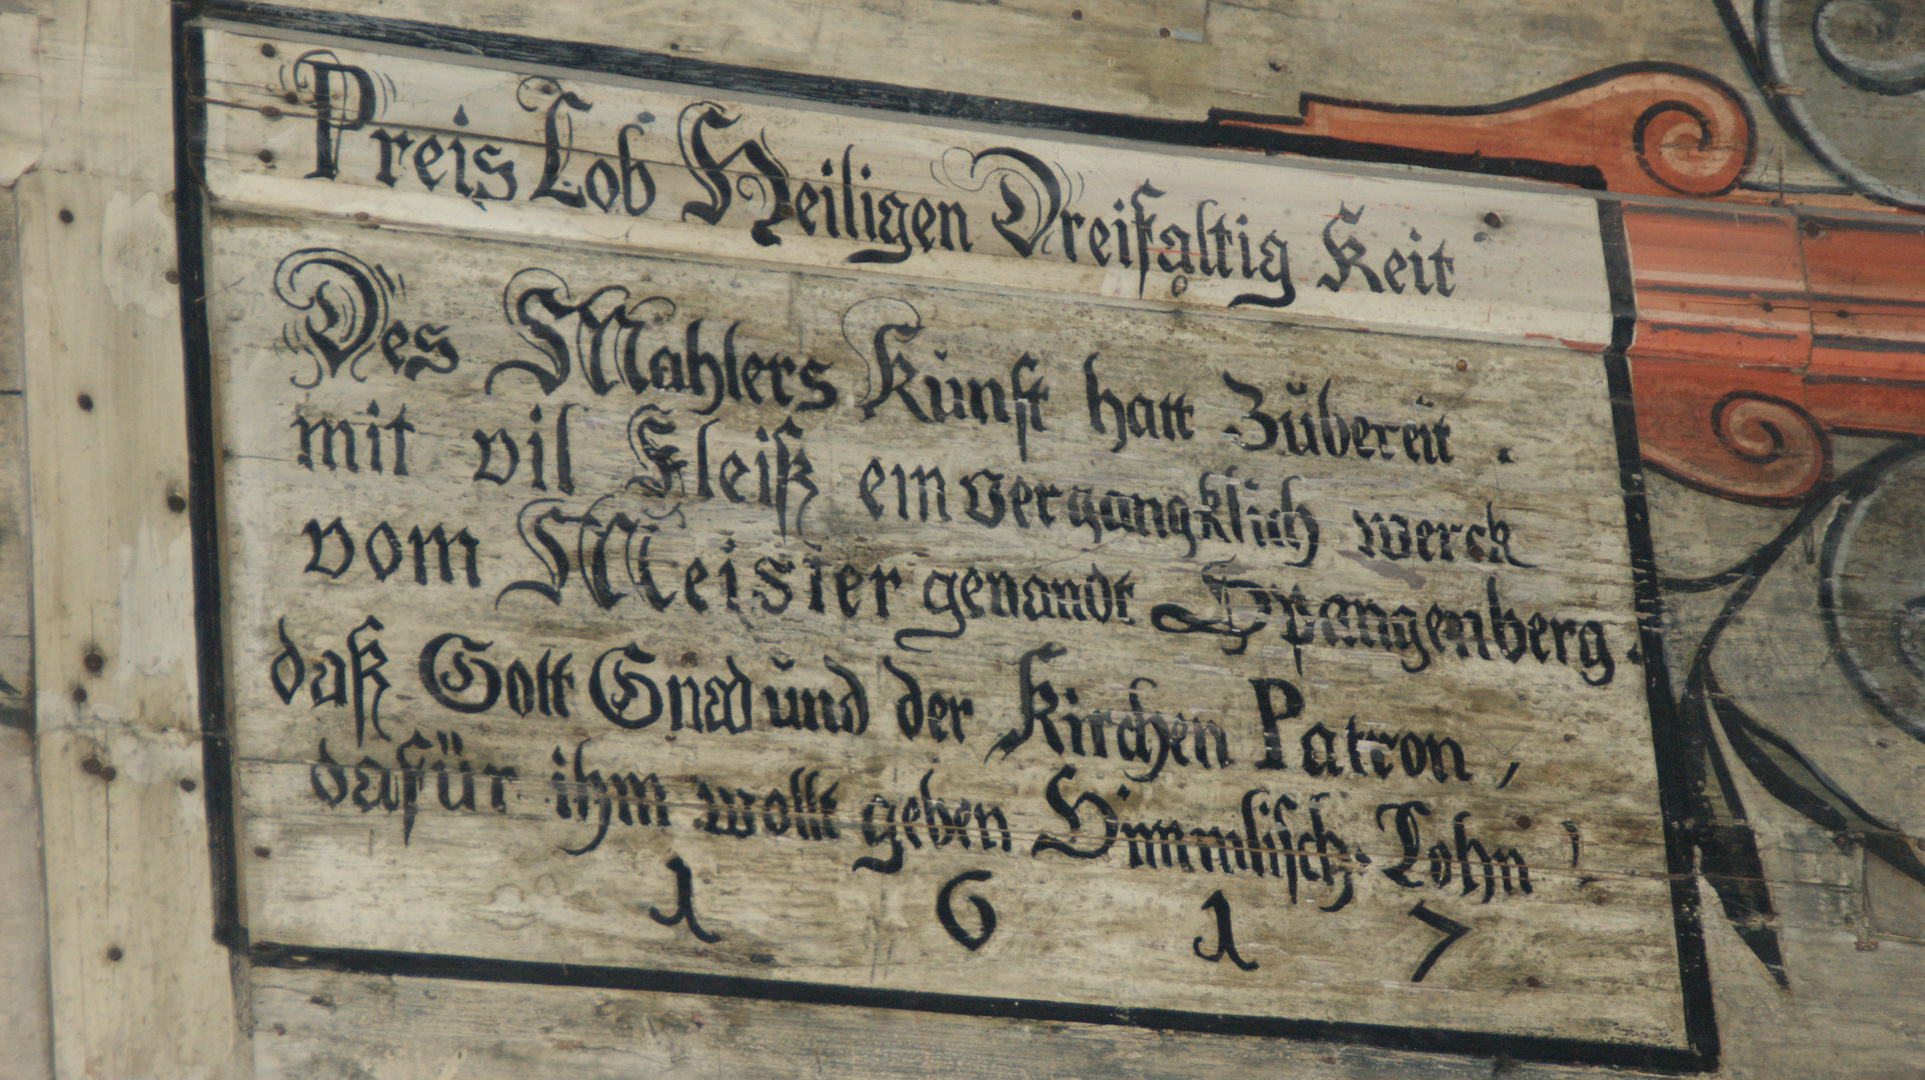 Preis Lob Heiligen Dreifaltig Keit
Des Mahlers Kunst hatt Zůbereit .
mit vil Fleiß ein vergangklich werck
vom Meister genandt Spangenberg .
daß Gott Gnad und der Kirchen Patron ,
dafür ihm wollt geben Himmlisch: Lohn !
1 6 1 7